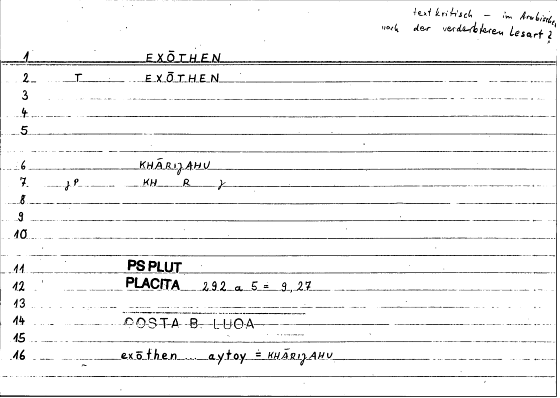 textkritisch – im Arabischen
nach der verderbteren Lesart?
1 EXŌTHEN
2 T EXŌTHEN
3
4
5
6 KHĀRIǦAHU
7 ǧP KH R ǧ
8
9
10
11 PS PLUT
12 PLACITA 292 a 5 = 9,27
13
14 QOSTA B. LUQA
15
16 exōthen aytoy = KHĀRIǦAHU